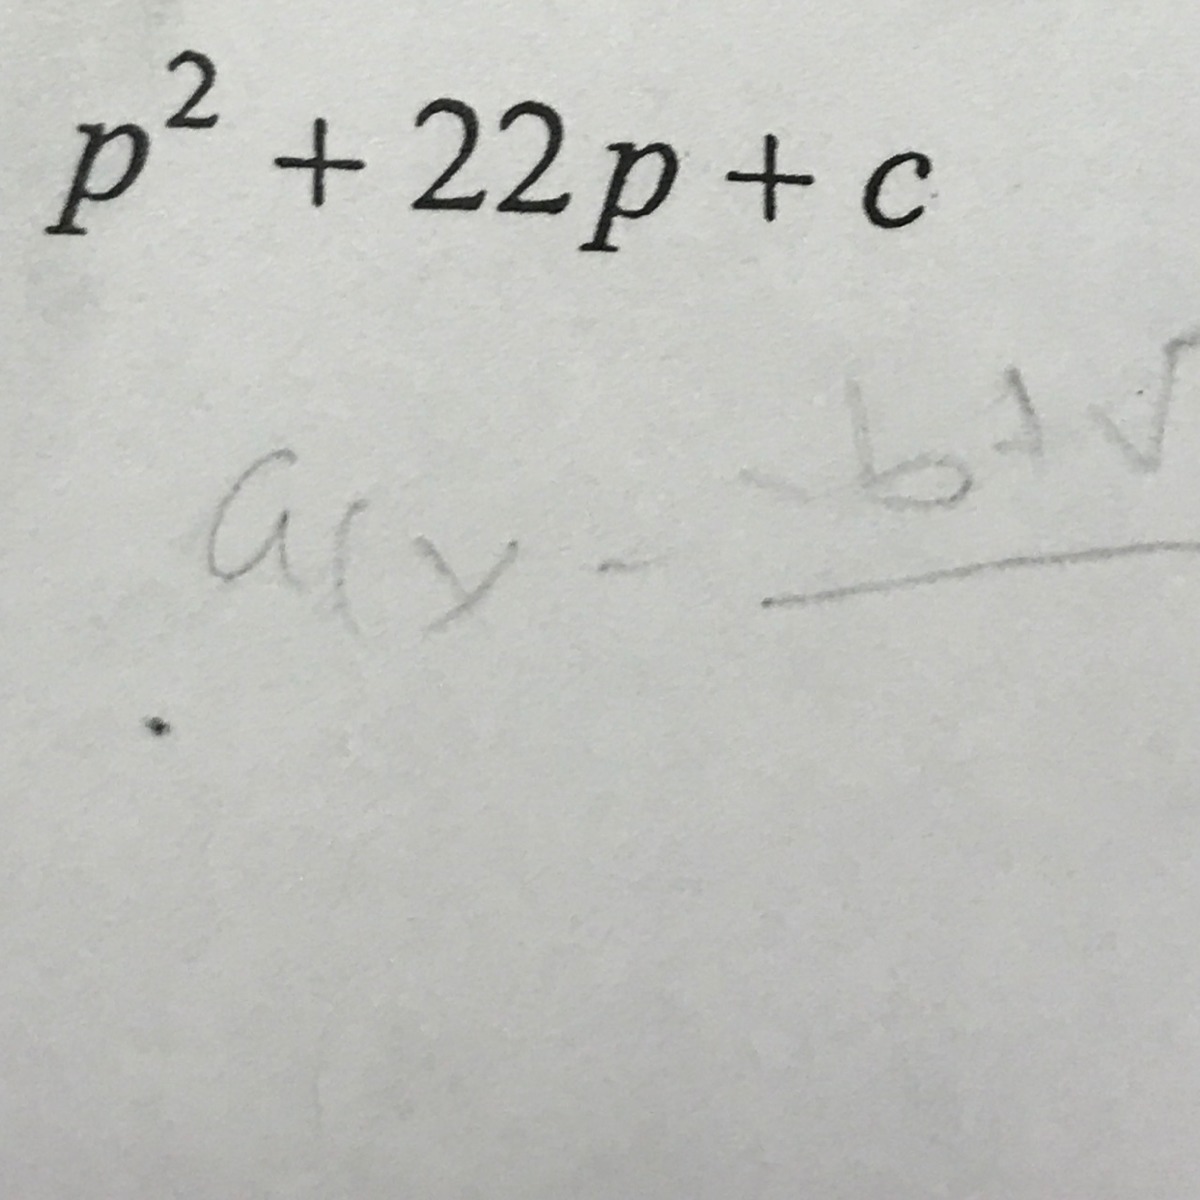 p² + 22p + c
a(x - -b+√